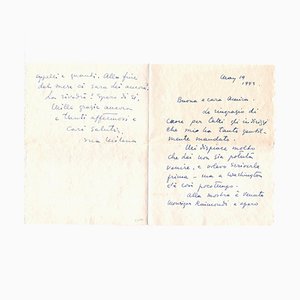 May 19
1953
Buona e cara Amica.
La ringrazio di
cuore per tutti gli indirizzi
che mi ha tanto gentil-
mente mandato.
Mi dispiace molto
che lei non sia potuta
venire, e volevo scriverle
prima - ma a Washington
c'è così poco tempo.
Alla mostra è venuto
Monsignor Raimondi e spero
e quanti. Alla fine
del mese ci sarà lei ancora?
La rivedrò? Spero di sì.
Mille grazie ancora
e tanti affettuosi e
cari saluti,
sua